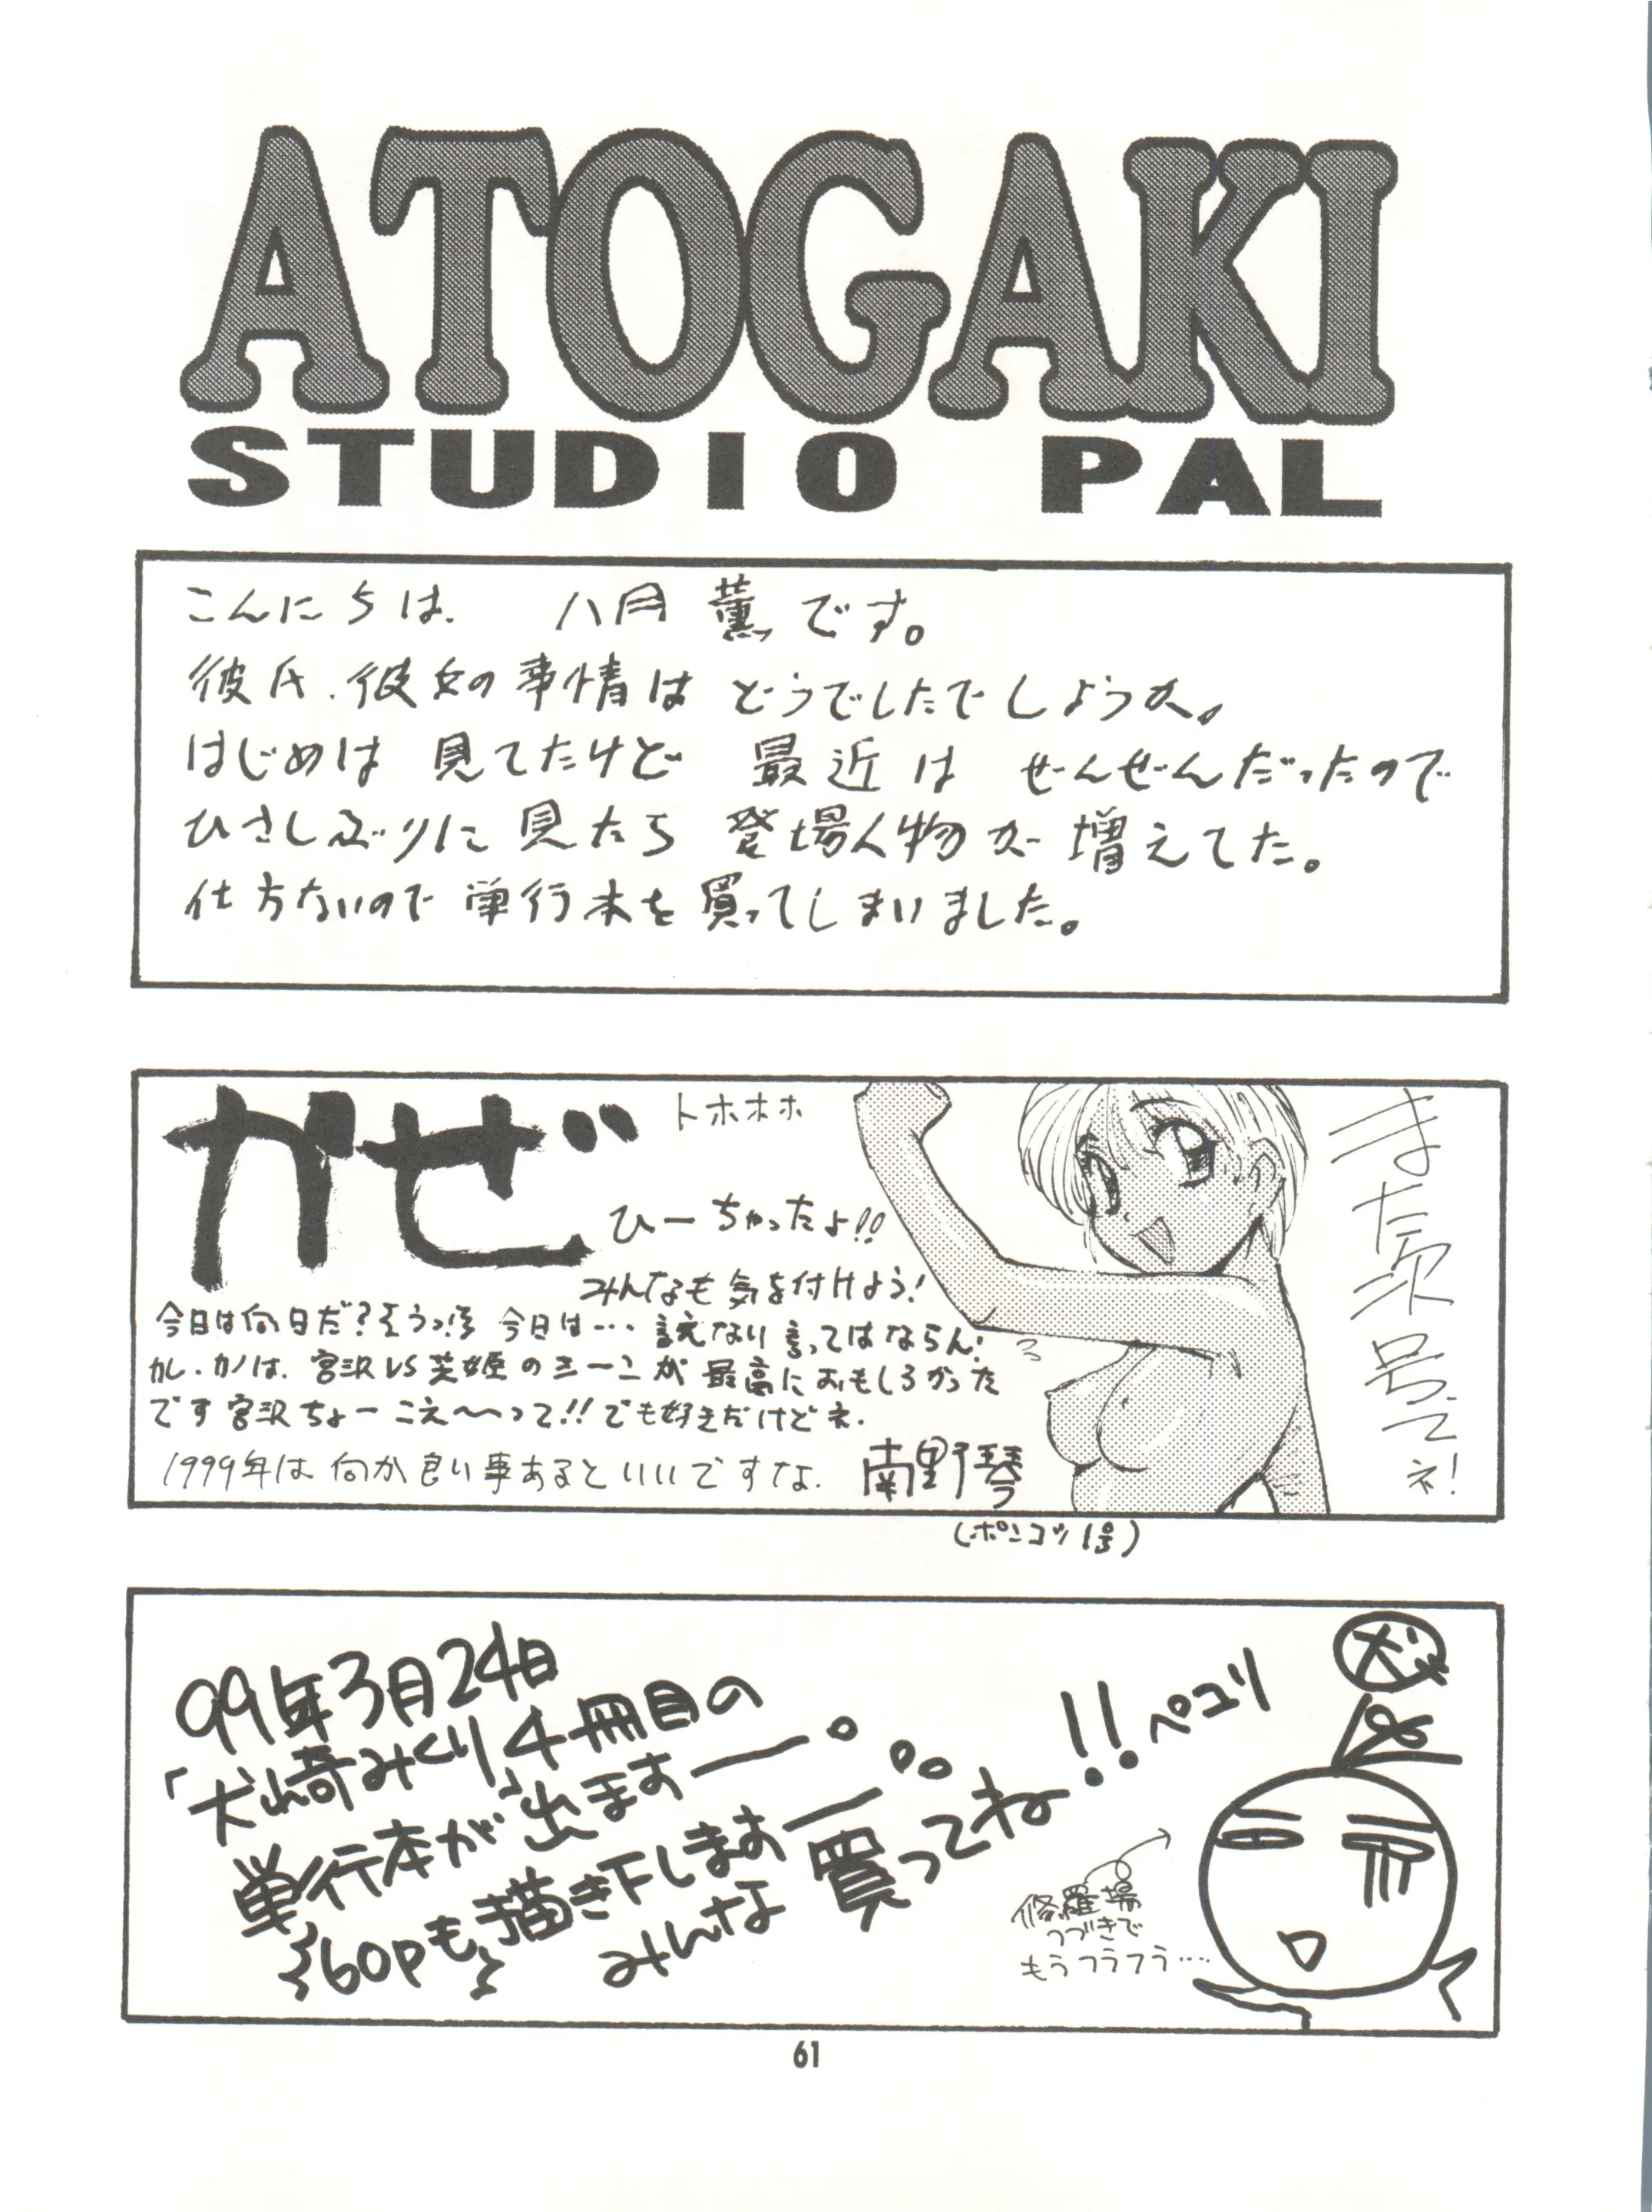 ATOGAKI
STUDIO PAL
こんにちは. 八月 薫です。
彼氏.彼女の事情は どうでしたでしょうか。
はじめは 見てたけど 最近は ぜんぜんだったので
ひさしぶりに 見たら 登場人物が 増えてた。
仕方ないので 単行本を 買ってしまいました。
かぜ
トホホホ
ひーちゃったよ!!
みんなも 気を付けよう!
今日は何日だ?そうっ!そ 今日は… 言えない 言ってはならん!
カレ.カノは. 宮沢VS芝姫の きーこが 最高におもしろかった
です 宮沢ちょーこえ〜〜って!! でも好きだけどネ.
1999年は 何か良い事あるといいですな.
南野琴
(ポンコツ1号)
また次号でネ!
99年3月24日
「犬崎みくり」4冊目の
単行本が出ますー。
60Pも描き下しますー。。
みんな買ってね!!ペコリ
犬
修羅場
つづきで
もうフラフラ….
61